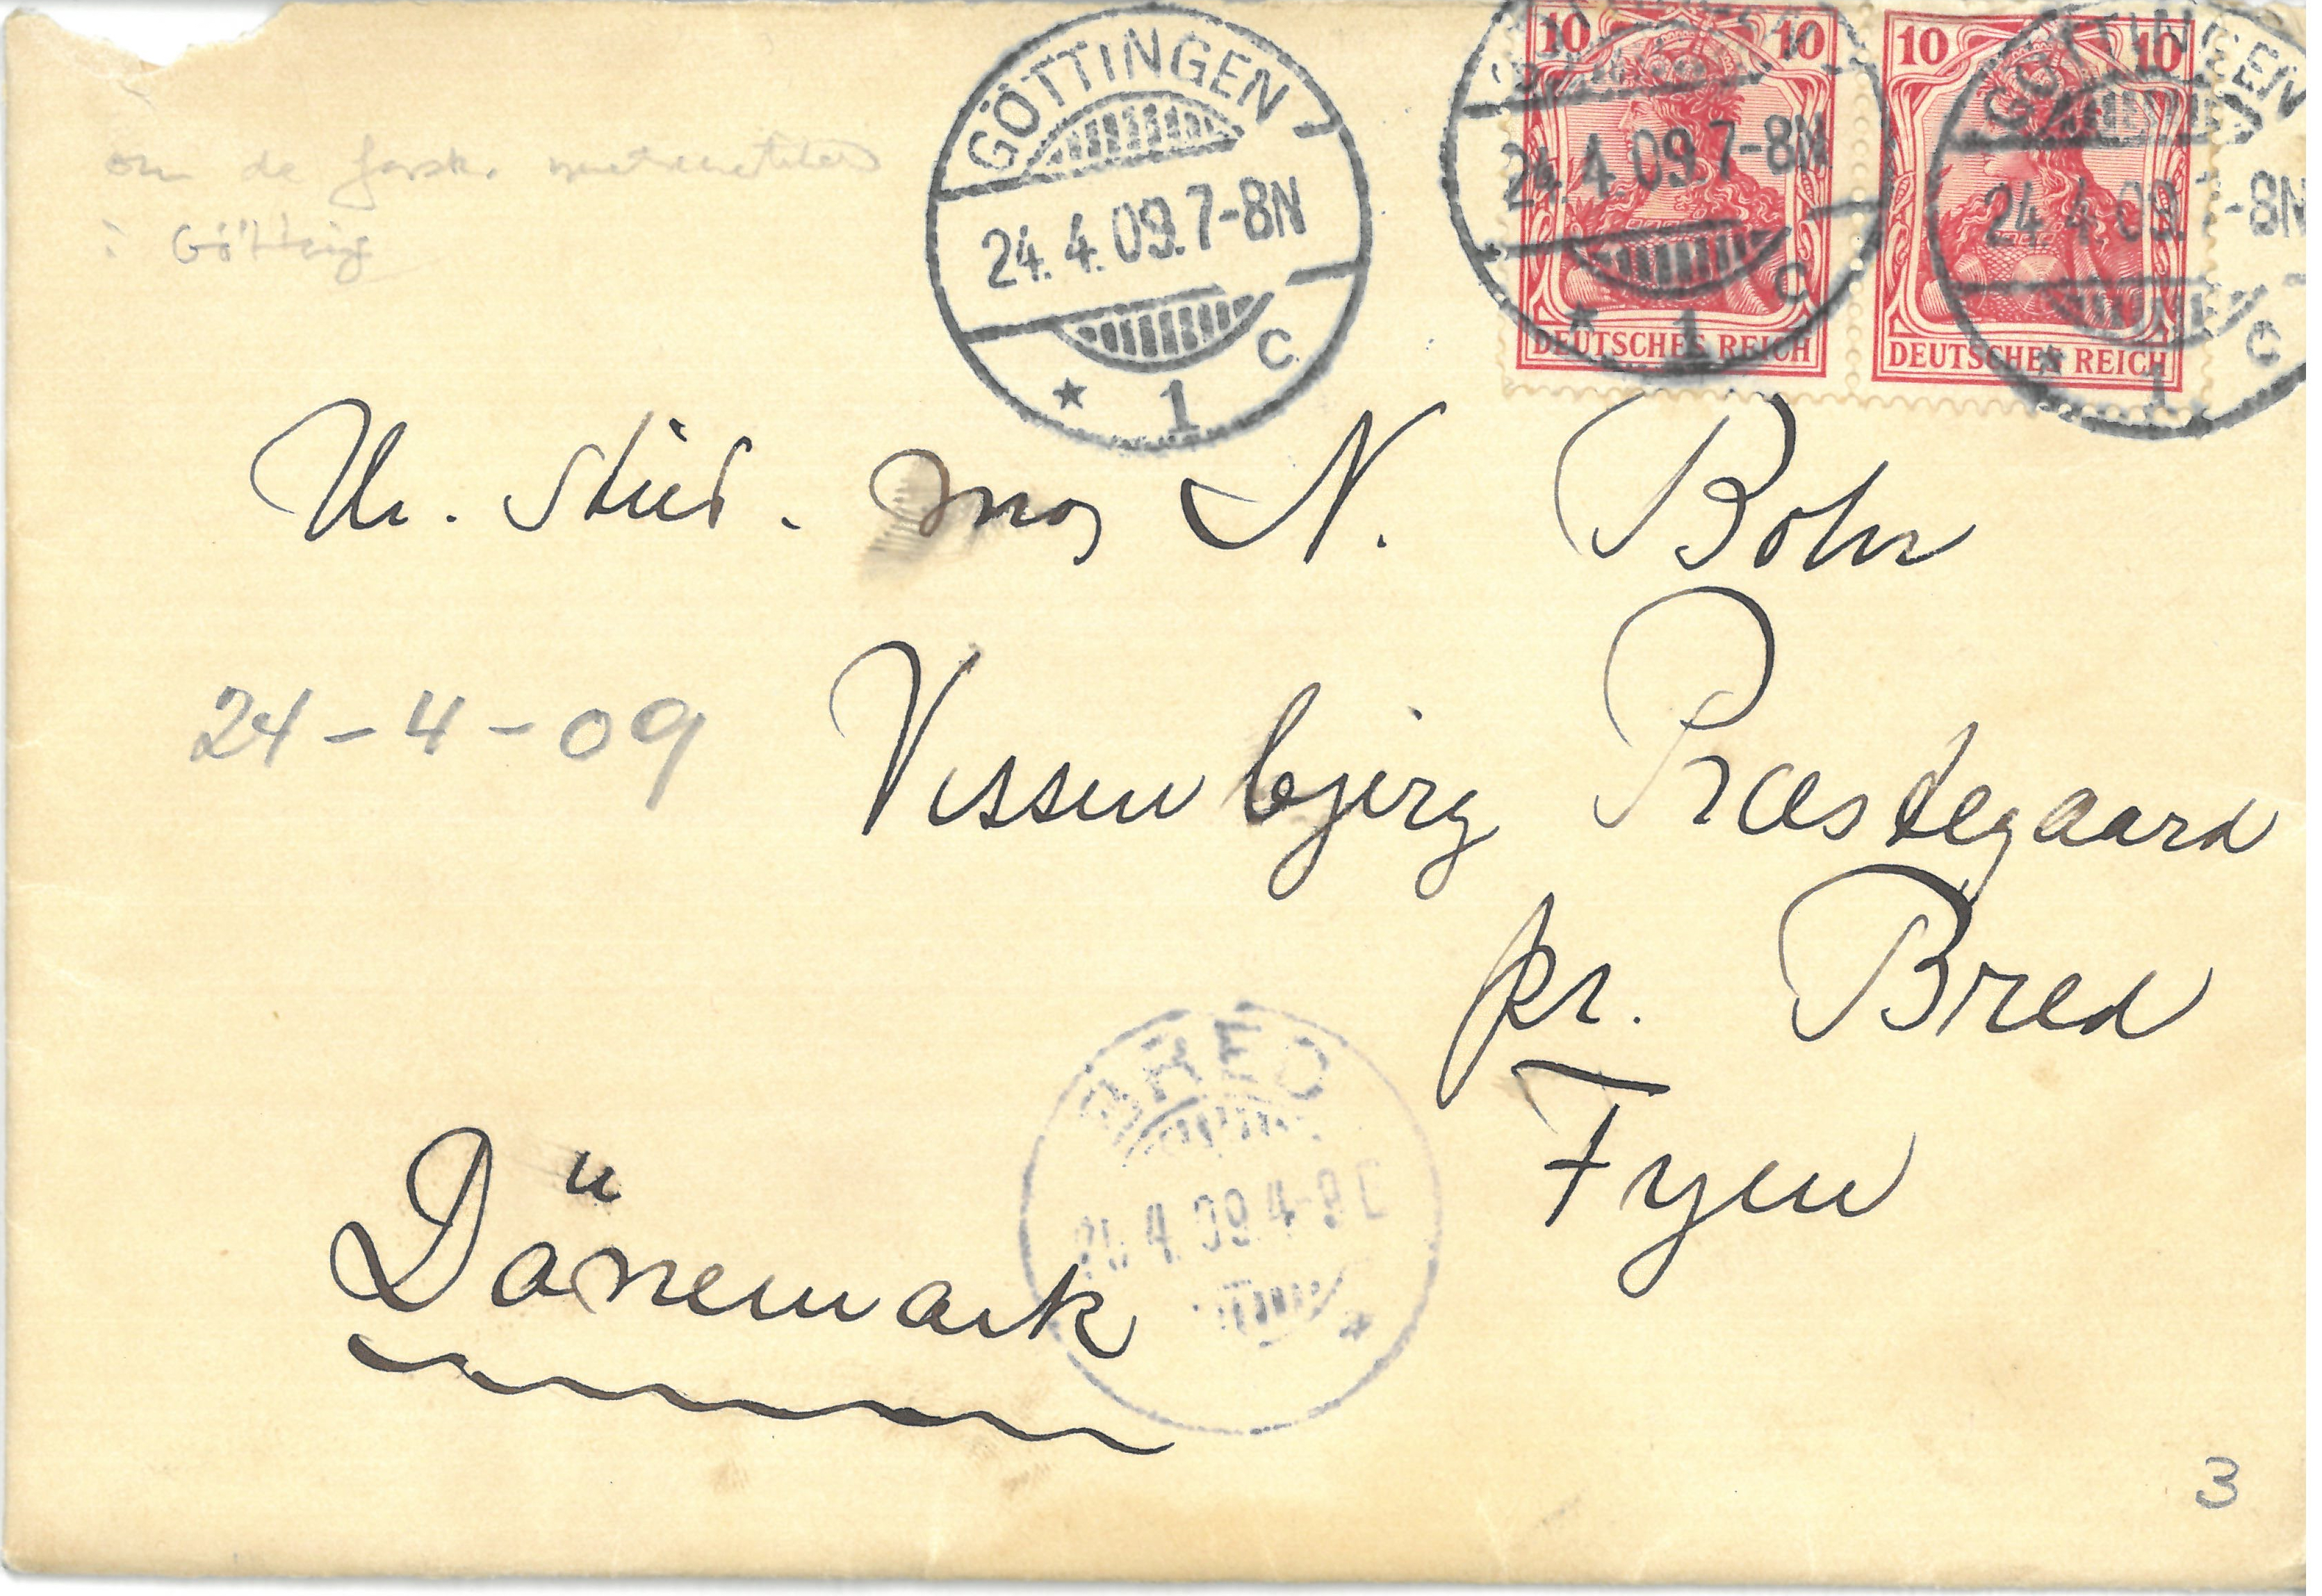 GÖTTINGEN
24.4.09.7-8N
* 1 C
10 10
24.4.09.7-8N
* 1 C
DEUTSCHES REICH
10 10
GÖTTINGEN
24.4.09.7-8N
* 1 C
DEUTSCHES REICH
om de forsk.
i Götting
Hr. stud. mag N. Bohr
24-4-09
Vissenbjerg Præstegaard
pr. Bred
Fyen
BRED
4.09 4-
Dänemark
3